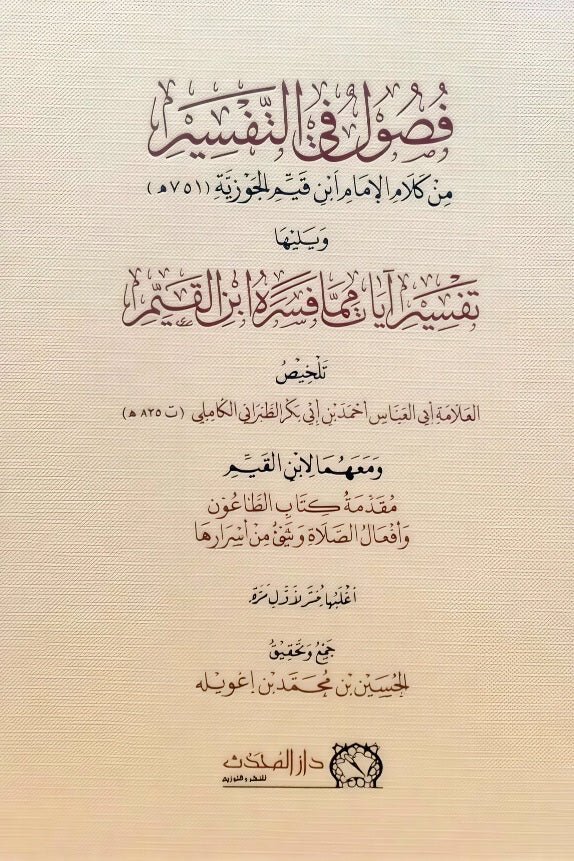 فُصُولٌ فِي التَّفْسِيرِ
مِنْ كَلَامِ الإِمَامِ ابْنِ قَيِّمِ الجَوْزِيَّةِ (٧٥١ه)
وَيَلِيْهَا
تَفْسِيْرِ آيَات مِمَّا فَسَرَهُ ابْنُ القَيِّمِ
تَلْخِيْصُ
العَلَامَةِ أَبِي العَبَّاسِ أحْمَدَ بْنِ أَبِي بَكْرٍ الطَّبَرَانِي الكَامِلِي (ت ٨٢٥ ه)
وَمَعَهُمَا لِابْنِ القَيِّمِ
مُقَدِّمَةُ كِتَابِ الطَّاعُوْنِ
وَأَفْعَالُ الصَّلَاةِ وَشَيْءٌ مِنْ أَسْرَارِهَا
أَغْلَبُهَا يُنْشَرُ لأَوَّلِ مَرَّةٍ.
جَمْعُ وَتَحْقِيْقُ
الحُسَيْنِ بْنِ مُحَمَّد بْنِ اغويله
دار المُحَدّث
للنشر والتوزيع